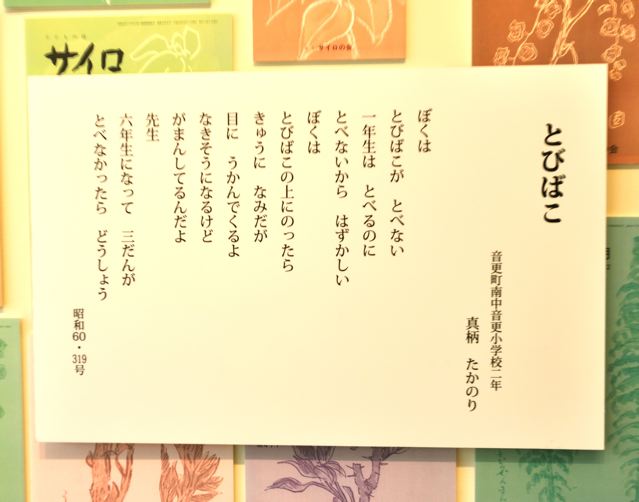 サイロ
サイロの会
会
とびばこ
音更町南中音更小学校二年
真柄　たかのり
ぼくは
とびばこが　とべない
一年生は　とべるのに
とべないから　はずかしい
ぼくは
とびばこの上にのったら
きゅうに　なみだが
目に　うかんでくるよ
なきそうになるけど
がまんしてるんだよ
先生
六年生になって　三だんが
とべなかったら　どうしょう
昭和60・319号